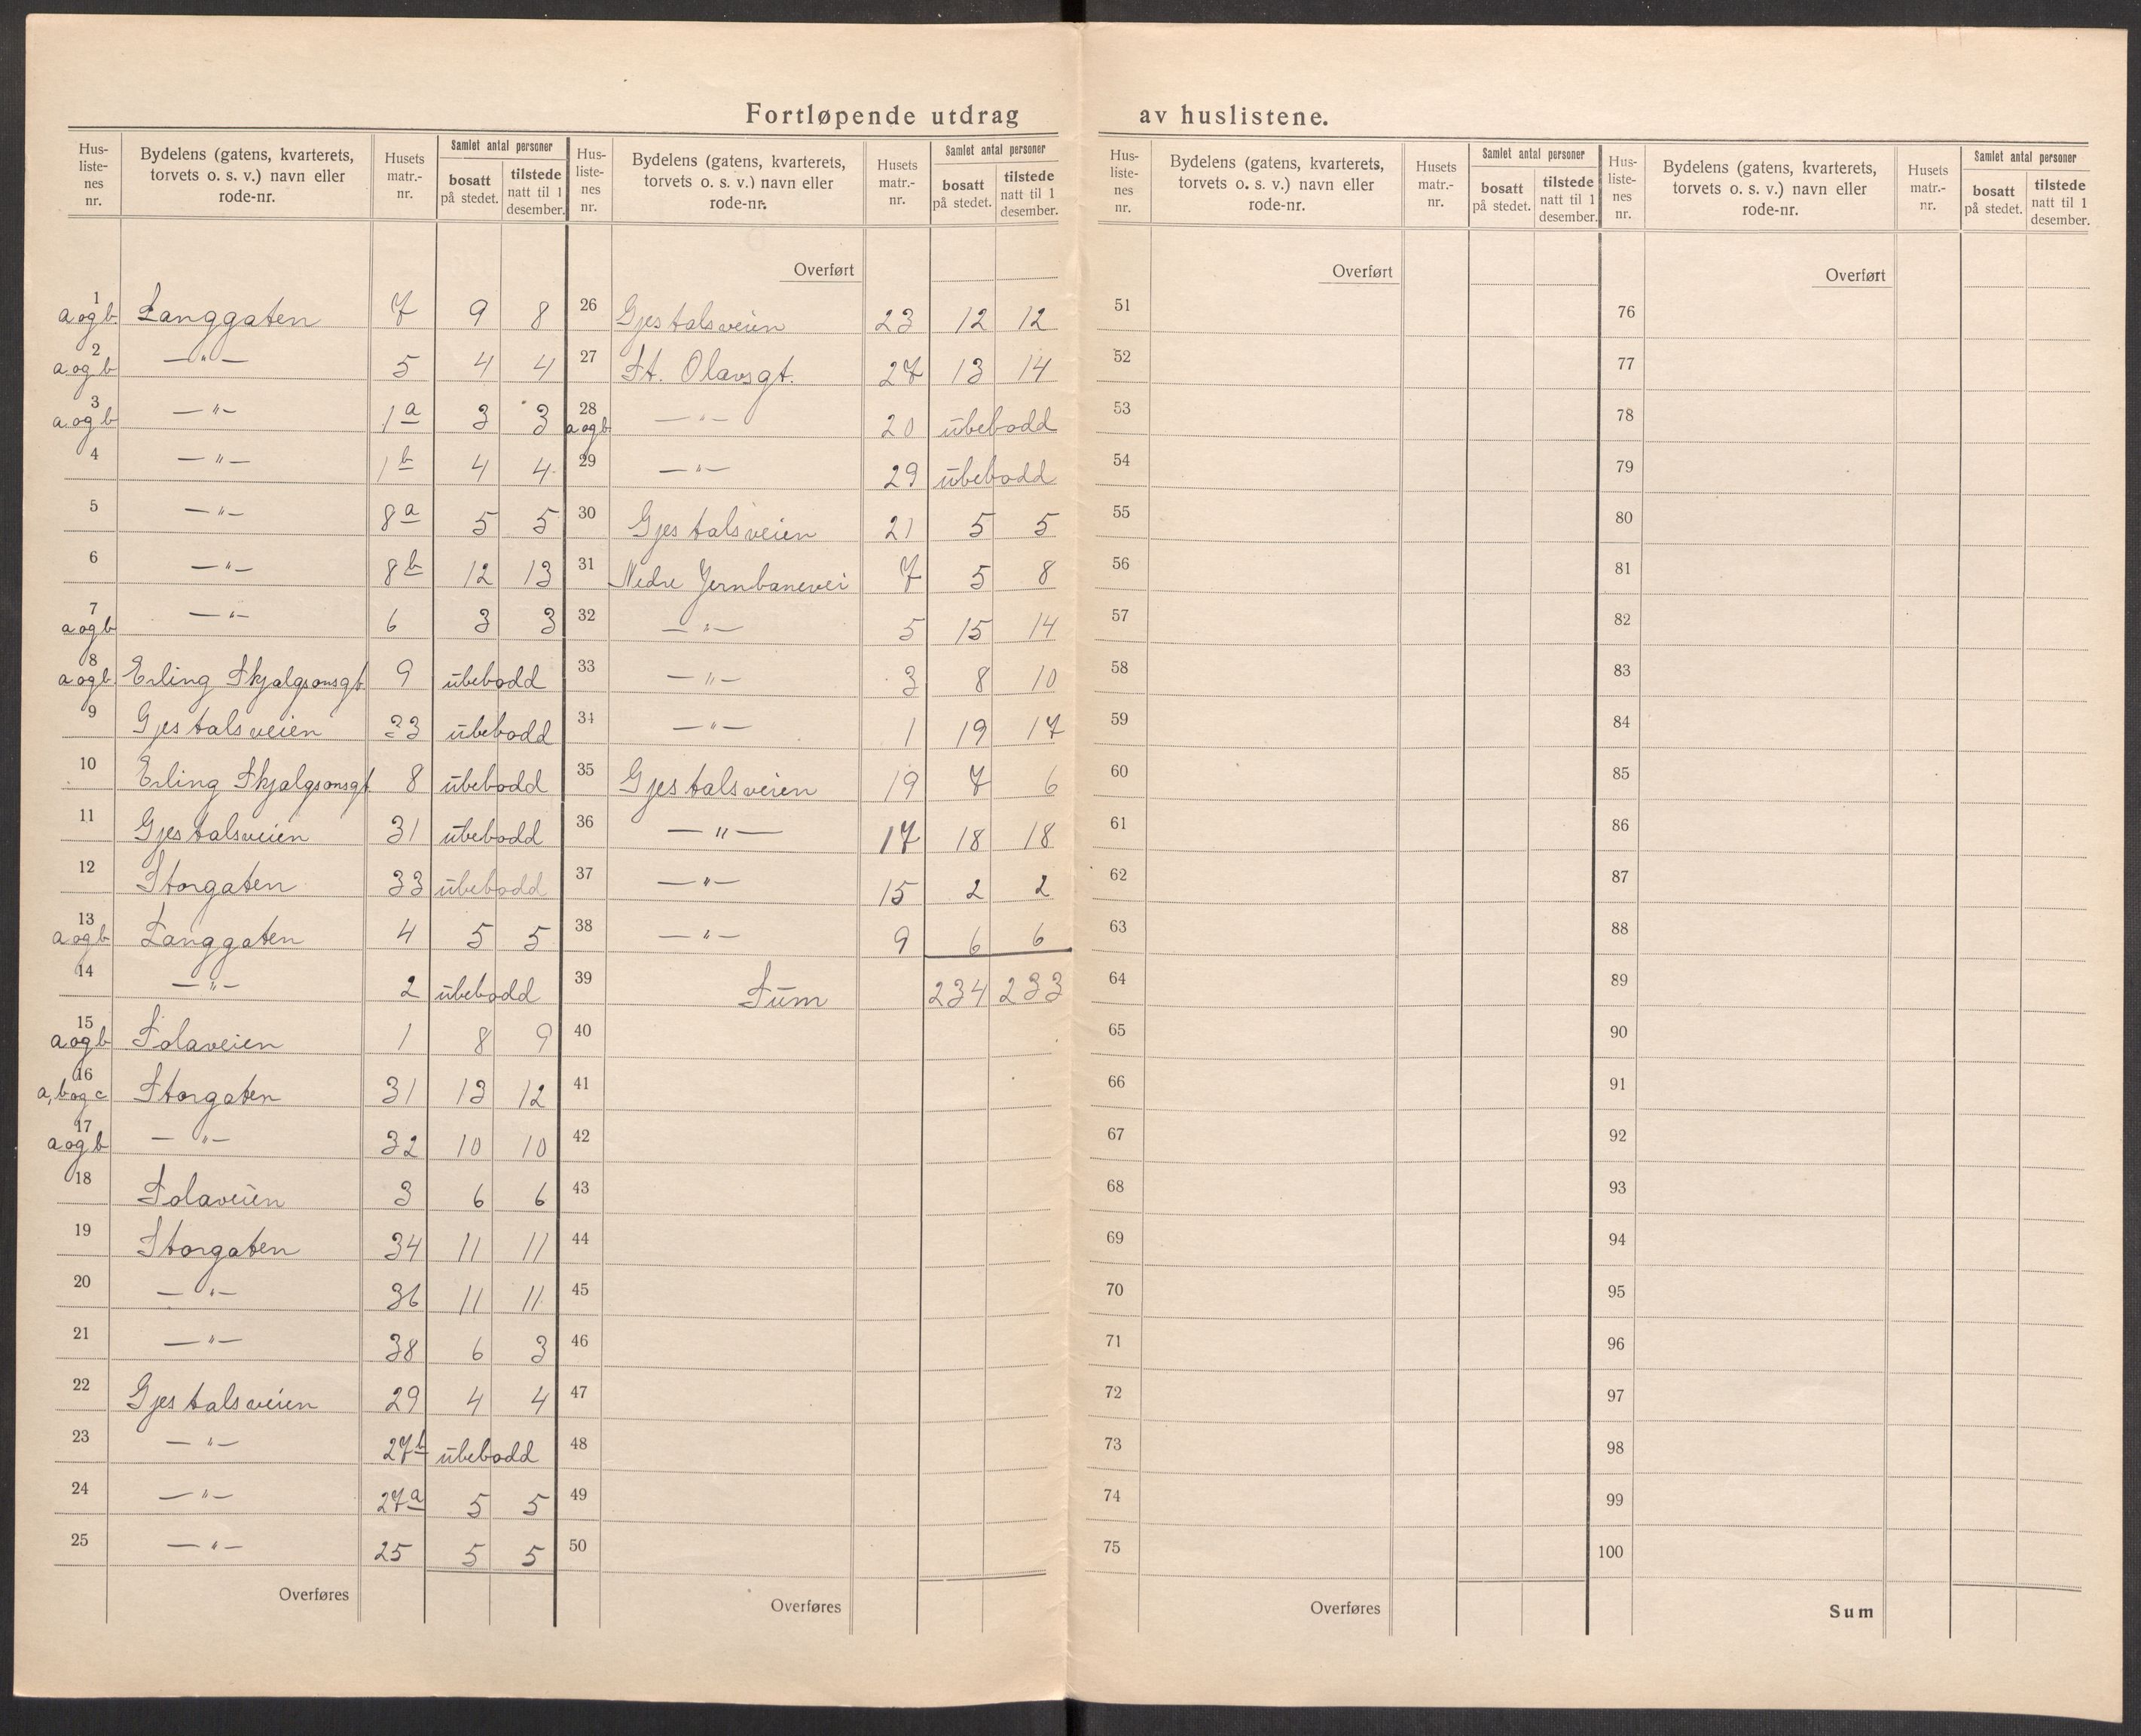 Fortløpende utdrag av huslistene.
Hus-liste-nes nr. | Bydelens (gatens, kvarterets, torvets o. s. v.) navn eller rode-nr. | Husets matr.-nr. | Samlet antal personer | bosatt på stedet. | tilstede natt til 1 desember.
1 a og b | Langgaten | 7 | 9 | 8
2 a og b | —"— | 5 | 4 | 4
3 a og b | —"— | 1a | 3 | 3
4 | —"— | 1b | 4 | 4
5 | —"— | 8a | 5 | 5
6 | —"— | 8b | 12 | 13
7 a og b | —"— | 6 | 3 | 3
8 a og b | Erling Skjalgsonsgt. | 9 | ubebodd
9 | Gjestalsveien | 33 | ubebodd
10 | Erling Skjalgsonsgt | 8 | ubebodd
11 | Gjestalsveien | 31 | ubebodd
12 | Storgaten | 33 | ubebodd
13 a og b | Langgaten | 4 | 5 | 5
14 | —"— | 2 | ubebodd
15 a og b | Solaveien | 1 | 8 | 9
16 a, b og c | Storgaten | 31 | 13 | 12
17 a og b | —"— | 32 | 10 | 10
18 | Solaveien | 3 | 6 | 6
19 | Storgaten | 34 | 11 | 11
20 | —"— | 36 | 11 | 11
21 | —"— | 38 | 6 | 3
22 | Gjestalsveien | 29 | 4 | 4
23 | —"— | 27b | ubebodd
24 | —"— | 27a | 5 | 5
25 | —"— | 25 | 5 | 5
Overføres
Hus-liste-nes nr. | Bydelens (gatens, kvarterets, torvets o. s. v.) navn eller rode-nr. | Husets matr.-nr. | Samlet antal personer | bosatt på stedet. | tilstede natt til 1 desember.
Overført
26 | Gjestalsveien | 23 | 12 | 12
27 | St. Olavsgt. | 27 | 13 | 14
28 a og b | —"— | 20 | ubebodd
29 | —"— | 29 | ubebodd
30 | Gjestalsveien | 21 | 5 | 5
31 | Nedre Jernbanevei | 7 | 5 | 8
32 | —"— | 5 | 15 | 14
33 | —"— | 3 | 8 | 10
34 | —"— | 1 | 19 | 17
35 | Gjestalsveien | 19 | 7 | 6
36 | —"— | 17 | 18 | 18
37 | —"— | 15 | 2 | 2
38 | —"— | 9 | 6 | 6
39 | Sum | 234 | 233
40
41
42
43
44
45
46
47
48
49
50
Overføres
Hus-liste-nes nr. | Bydelens (gatens, kvarterets, torvets o. s. v.) navn eller rode-nr. | Husets matr.-nr. | Samlet antal personer | bosatt på stedet. | tilstede natt til 1 desember.
Overført
51
52
53
54
55
56
57
58
59
60
61
62
63
64
65
66
67
68
69
70
71
72
73
74
75
Overføres
Hus-liste-nes nr. | Bydelens (gatens, kvarterets, torvets o. s. v.) navn eller rode-nr. | Husets matr.-nr. | Samlet antal personer | bosatt på stedet. | tilstede natt til 1 desember.
Overført
76
77
78
79
80
81
82
83
84
85
86
87
88
89
90
91
92
93
94
95
96
97
98
99
100
Sum